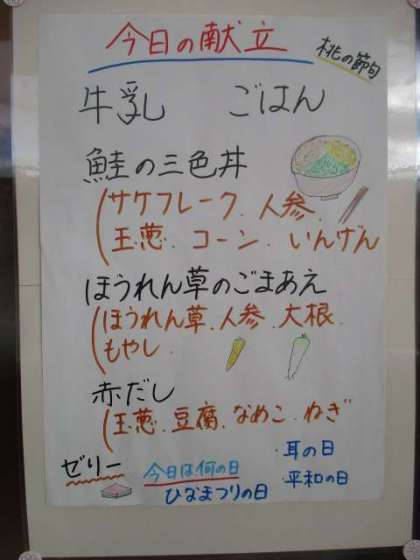 今日の献立
桃の節句
牛乳 ごはん
鮭の三色丼
(サケフレーク、人参、
玉葱、コーン、いんげん
ほうれん草のごまあえ
(ほうれん草、人参、大根、
もやし、
赤だし
(玉葱、豆腐、なめこ、ねぎ
ゼリー
今日は何の日
ひなまつりの日
・耳の日
・平和の日